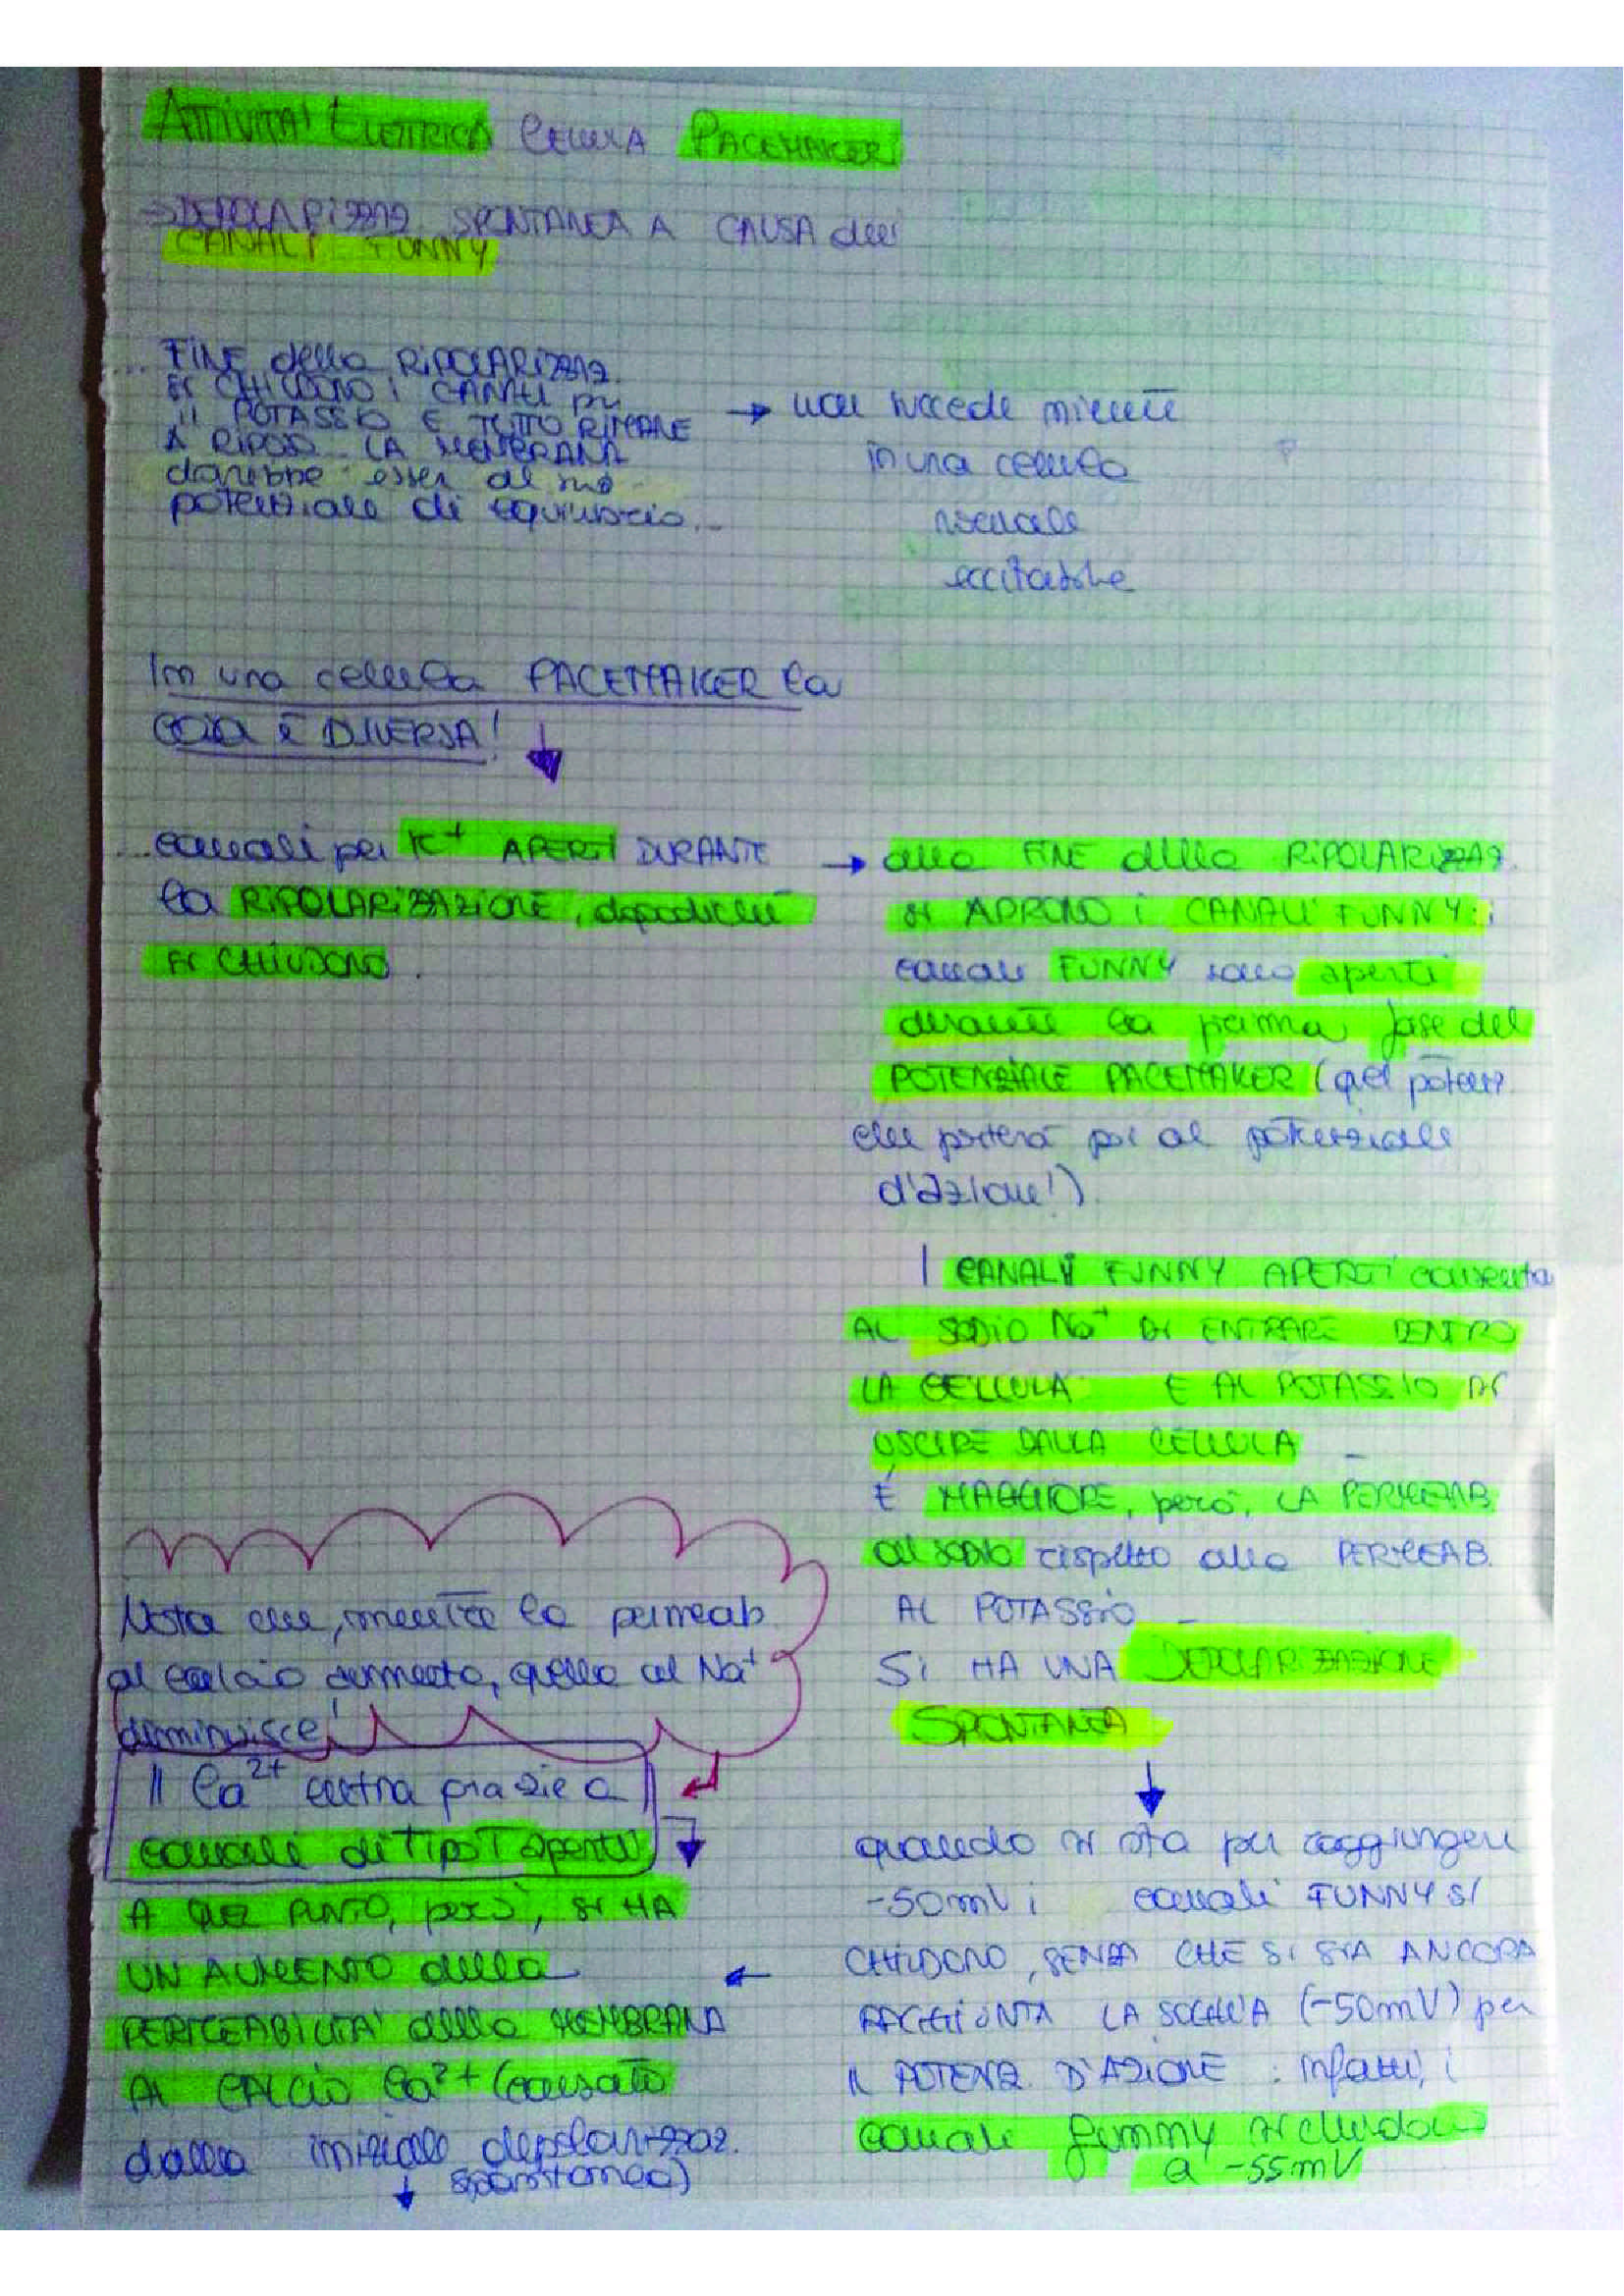 ATTIVITA' ELETTRICA CELLULA PACEMAKER
→ DEPOLARIZZAZ. SPONTANEA A CAUSA dei
CANALI FUNNY
... FINE della RIPOLARIZZAZ.
SI CHIUDONO I CANALI per
il POTASSIO E TUTTO RIMANE
A RIPOSO. LA MEMBRANA
dovrebbe esser al suo
potenziale di equilibrio...
→ non succede niente
in una cellula
normale
eccitabile
In una cellula PACEMAKER la
cosa è DIVERSA!
... canali per K+ APERTI DURANTE
la RIPOLARIZZAZIONE, dopodiché
SI CHIUDONO.
→ alla FINE della RIPOLARIZZAZ.
SI APRONO i CANALI FUNNY: i
canali FUNNY sono aperti
durante la prima fase del
POTENZIALE PACEMAKER (quel potenz.
che porterà poi al potenziale
d'azione!).
I CANALI FUNNY APERTI consento
AL SODIO Na+ DI ENTRARE DENTRO
LA CELLULA E AL POTASSIO DI
USCIRE DALLA CELLULA
È MAGGIORE, però, LA PERMEAB.
al SODIO rispetto alla PERMEAB.
AL POTASSIO
SI HA UNA DEPOLARIZZAZIONE
SPONTANEA
quando si sta per raggiungere
-50mV i canali FUNNY SI
CHIUDONO, SENZA CHE SI SIA ANCORA
RAGGIUNTA LA SOGLIA (-50mV) per
IL POTENZ. D'AZIONE: infatti, i
canali funny si chiudono
a -55mV
Nota che, mentre la permeab.
al calcio aumenta, quella al Na+
diminuisce!
Il Ca2+ entra grazie a
canali di Tipo T aperti
A QUEL PUNTO, però, SI HA
UN AUMENTO della
PERMEABILITA' della MEMBRANA
AL CALCIO Ca2+ (causato
dalla iniziale depolarizzaz.
spontanea)